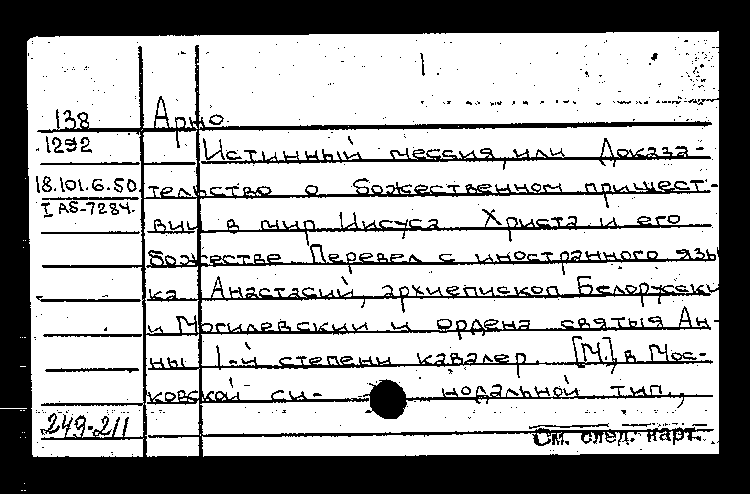 1.
138 Арно
1292 Истинный мессия, или Доказа-
18.101.6.50. тельство о божественном пришест-
I AS-7284. вии в мир Иисуса Христа и его
божестве. Перевел с иностранного язы-
ка Анастасий, архиепископ Белорусский
и Могилевский и ордена святыя Ан-
ны 1-й степени кавалер. [М.], в Мос-
ковской си- нодальной тип.,
249-211
См. след. карт.